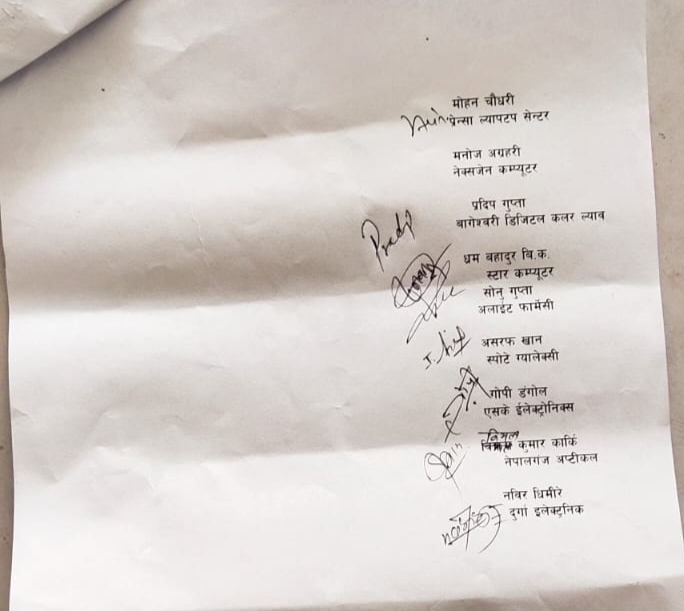 मोहन चौधरी
प्रेन्सा ल्यापटप सेन्टर
मनोज अग्रहरी
नेक्सजेन कम्प्यूटर
प्रदिप गुप्ता
बागेश्वरी डिजिटल कलर ल्याव
Pradip
धम बहादुर वि.क.
स्टार कम्प्यूटर
सोनु गुप्ता
अलाईट फार्मेसी
असरफ खान
स्पोटे ग्यालेक्सी
गोपी डंगोल
एसके ईलेक्ट्रोनिक्स
विमल कुमार कार्कि
नेपालगंज अप्टीकल
नविर घिमीरे
दुर्गा इलेक्ट्रनिक